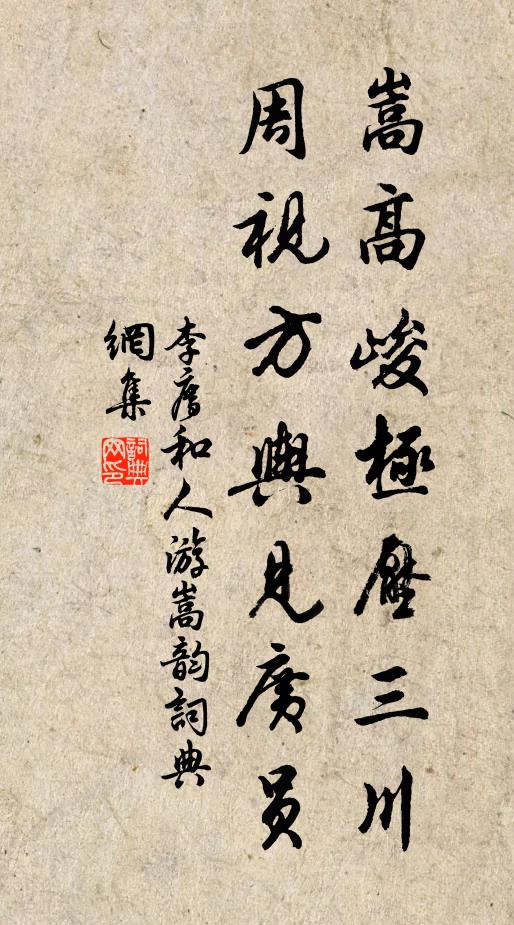 嵩高峻極壓三川
周視方輿見廣員
李廌和人游嵩韵詞典
網集
詞典網印